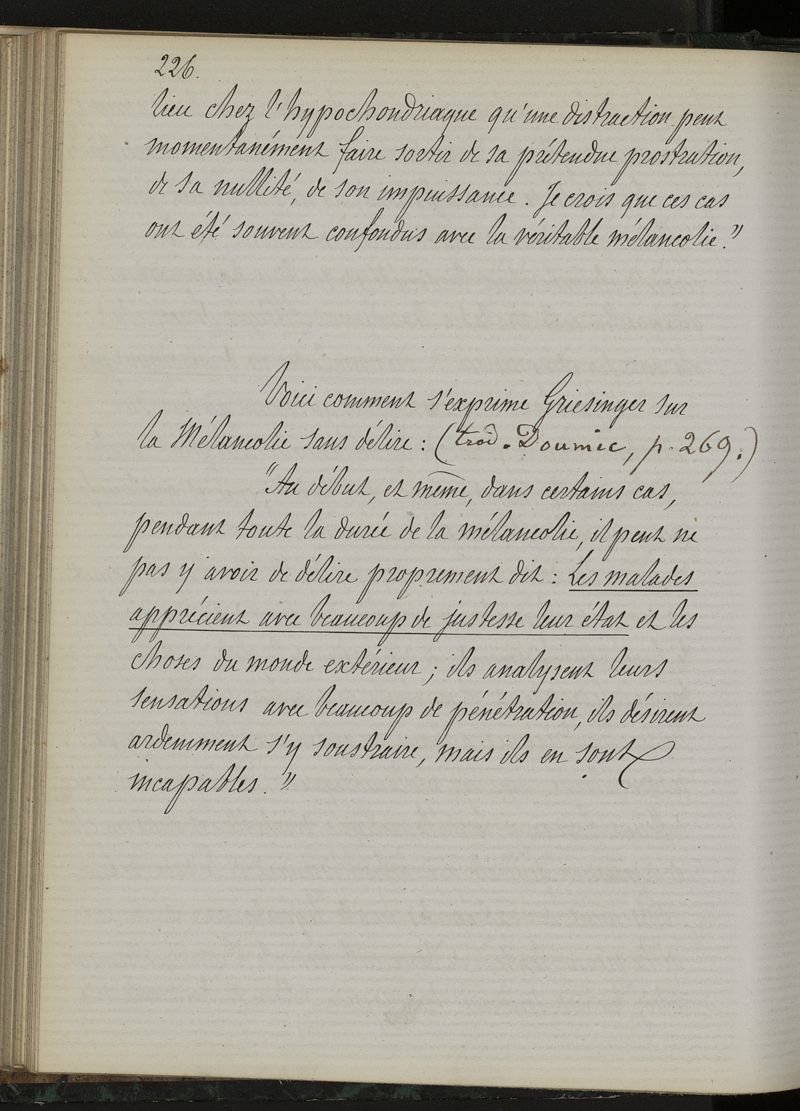 226.
lieu chez l'hypochondriaque qu'une distraction peut
momentanément faire sortir de sa prétendue prostration,
de sa nullité, de son impuissance. Je crois que ces cas
ont été souvent confondus avec la véritable mélancolie."
Voici comment s'exprime Griesinger sur
la Mélancolie sans délire : (trad. Doumic, p. 269.)
"Au début, et même, dans certains cas,
pendant toute la durée de la mélancolie, il peut ne
pas y avoir de délire proprement dit : Les malades
apprécient avec beaucoup de justesse leur état et les
choses du monde extérieur ; ils analysent leurs
sensations avec beaucoup de pénétration, ils désirent
ardemment s'y soustraire, mais ils en sont
incapables."